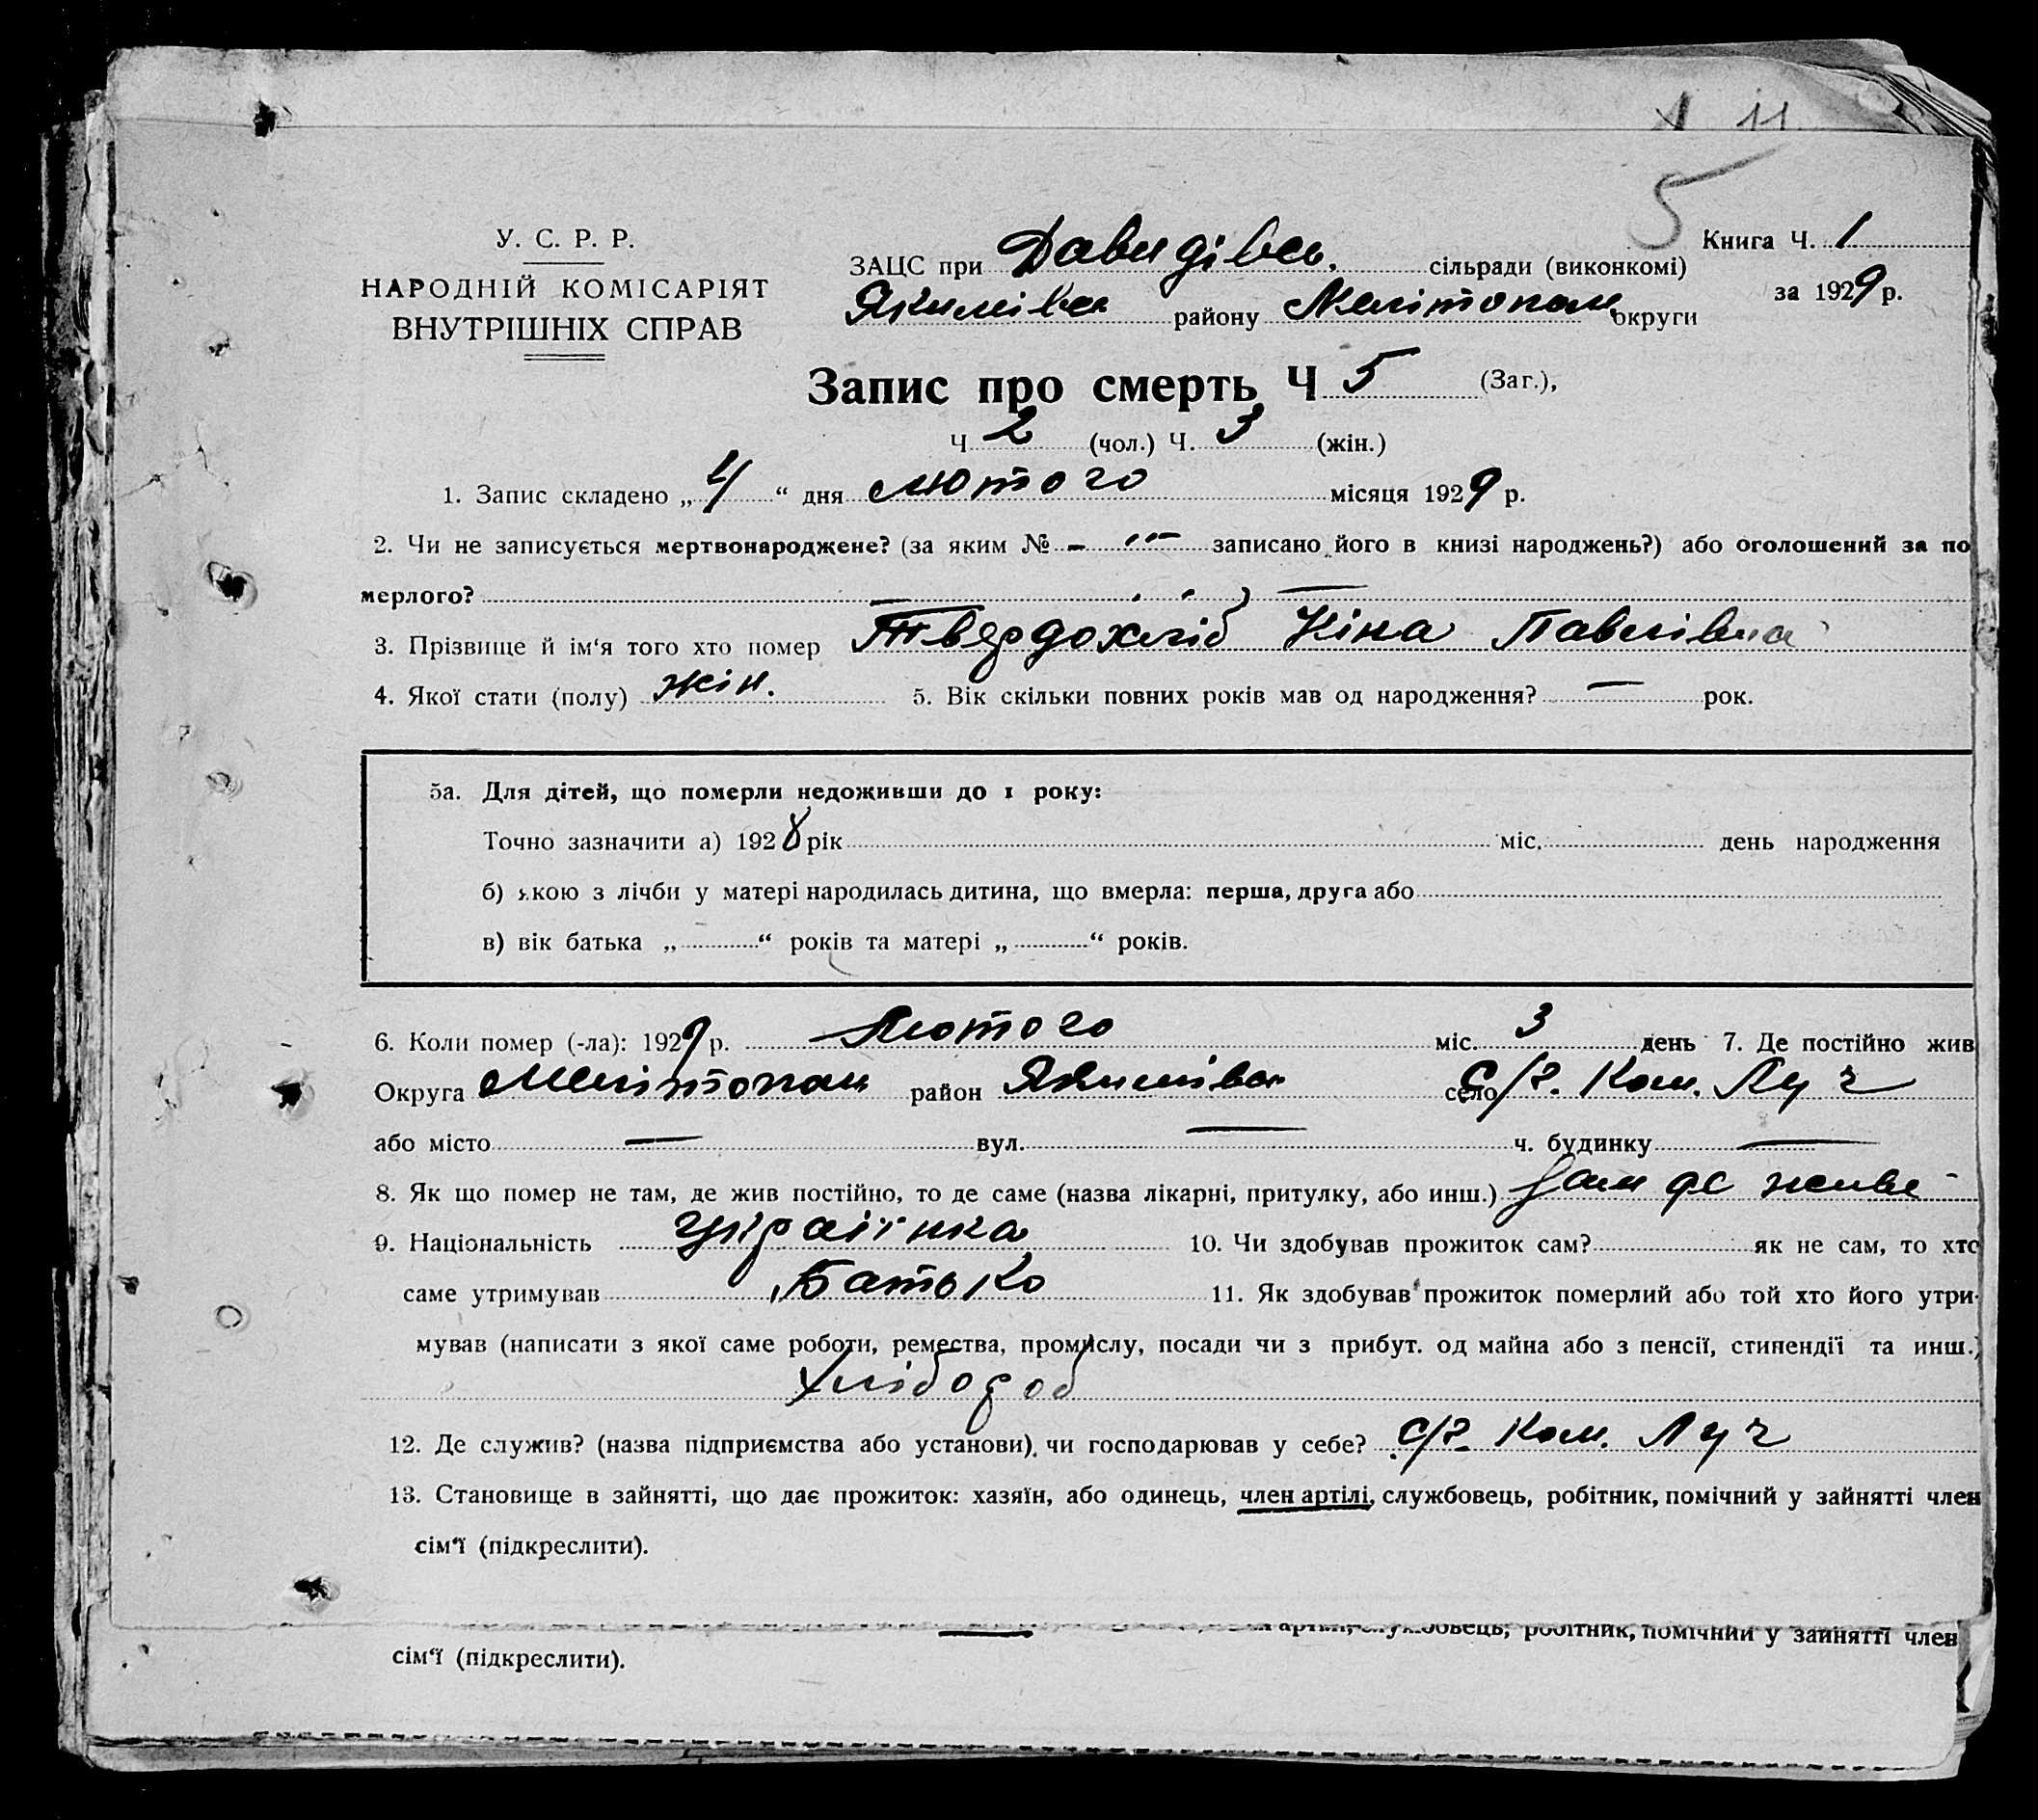 11
5
У. С. Р. Р.
НАРОДНІЙ КОМІСАРІЯТ
ВНУТРІШНІХ СПРАВ
ЗАЦС при Давидівськ. сільради (виконкомі)
Книга Ч. 1
за 1929 р.
Якимівськ району Мелітопольськ округи
Запис про смерть Ч 5 (Заг.),
Ч 2 (чол.) Ч. 3 (жін.)
1. Запис складено „4“ дня лютого місяця 1929 р.
2. Чи не записується мертвонароджене? (за яким № - записано його в книзі народжень?) або оголошений за по
мерлого? —
3. Прізвище й ім‘я того хто помер Твердохліб Ніна Павлівна
4. Якої стати (полу) жін. 5. Вік скільки повних років мав од народження? — рок.
5а. Для дітей, що померли недоживши до 1 року:
Точно зазначити а) 1928 рік міс. день народження
б) якою з лічби у матері народилась дитина, що вмерла: перша, друга або
в) вік батька „ “ років та матері „ “ років.
6. Коли помер (-ла): 1929 р. Лютого міс. 3 день 7. Де постійно жив
Округа район село с/г. Ком. Луч
або місто — вул. — ч. будинку —
8. Як що помер не там, де жив постійно, то де саме (назва лікарні, притулку, або инш.) там де живе
9. Національність українка 10. Чи здобував прожиток сам? як не сам, то хто
саме утримував Батько 11. Як здобував прожиток померлий або той хто його утри-
мував (написати з якої саме роботи, ремества, промислу, посади чи з прибут. од майна або з пенсії, стипендії та инш.)
Хлібороб
12. Де служив? (назва підприємства або установи), чи господарював у себе? с/г. Ком. Луч
13. Становище в зайнятті, що дає прожиток: хазяїн, або одинець, член артілі, службовець, робітник, помічний у зайнятті член
сім‘ї (підкреслити).
артілі, службовець, робітник, помічний у зайнятті член
сім‘ї (підкреслити).